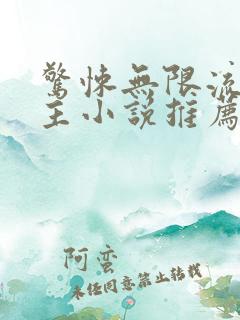 驚悚無限流
主小說推薦
阿蠻
未经同意禁止转载